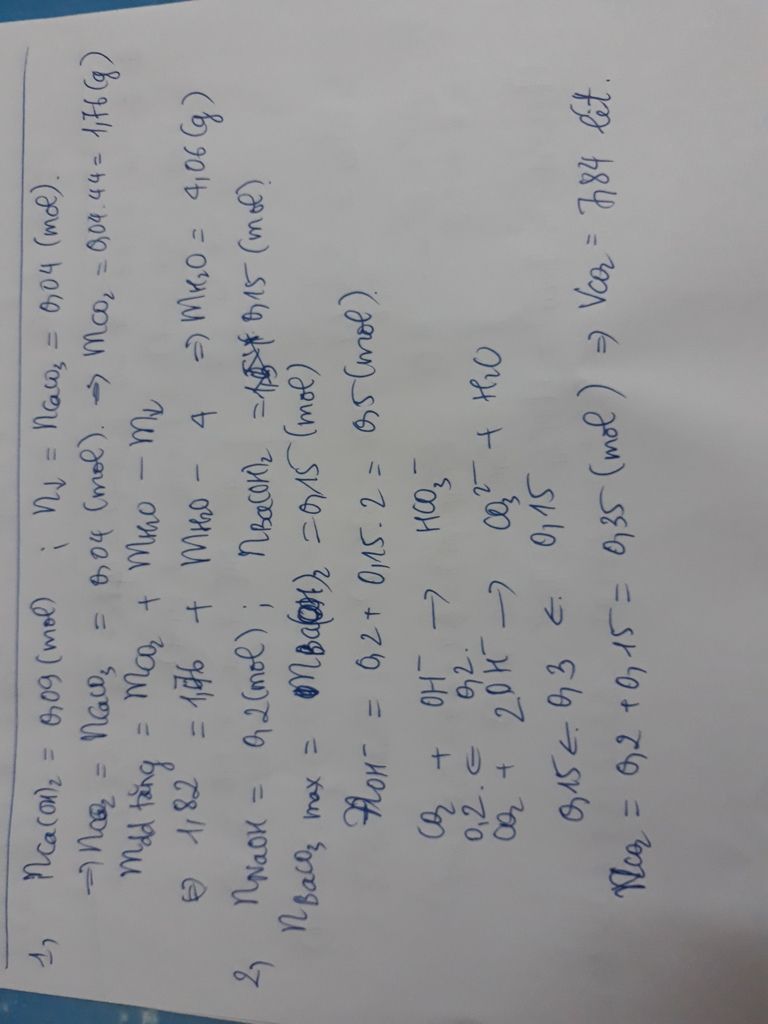 1, nCa(OH)₂ = 0,09 (mol) ; n↓ = nCaCO₃ = 0,04 (mol).
=> nCO₂ = nCaCO₃ = 0,04 (mol). => mCO₂ = 0,04.44 = 1,76 (g)
mdd tăng = mCO₂ + mH₂O - m↓
⇔ 1,82 = 1,76 + mH₂O - 4 => mH₂O = 4,06 (g)
2, nNaOH = 0,2 (mol) ; nBa(OH)₂ = 0,15 (mol).
nBaCO₃ max = nBa(OH)₂ = 0,15 (mol)
nOH⁻ = 0,2 + 0,15.2 = 0,5 (mol).
CO₂ + OH⁻ → HCO₃⁻
0,2. ← 0,2.
CO₂ + 2OH⁻ → CO₃²⁻ + H₂O
0,15 ← 0,3 ← 0,15
nCO₂ = 0,2 + 0,15 = 0,35 (mol) => VCO₂ = 7,84 lít.